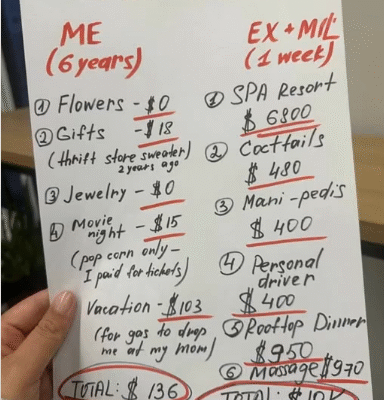 ME
(6 years)
① Flowers - $0
② Gifts - $18
(thrift store sweater)
2 years ago
③ Jewelry - $0
④ Movie
night - $15
(pop corn only -
I paid for tickets)
Vacation - $103
(for gas to drop
me at my mom)
TOTAL: $136
EX + MIL
(1 week)
① SPA Resort
$6800
② Coctails
$480
③ Mani-pedis
$400
④ Personal
driver
$400
⑤ Rooftop Dinner
$950
⑥ Massage $970
TOTAL: $10